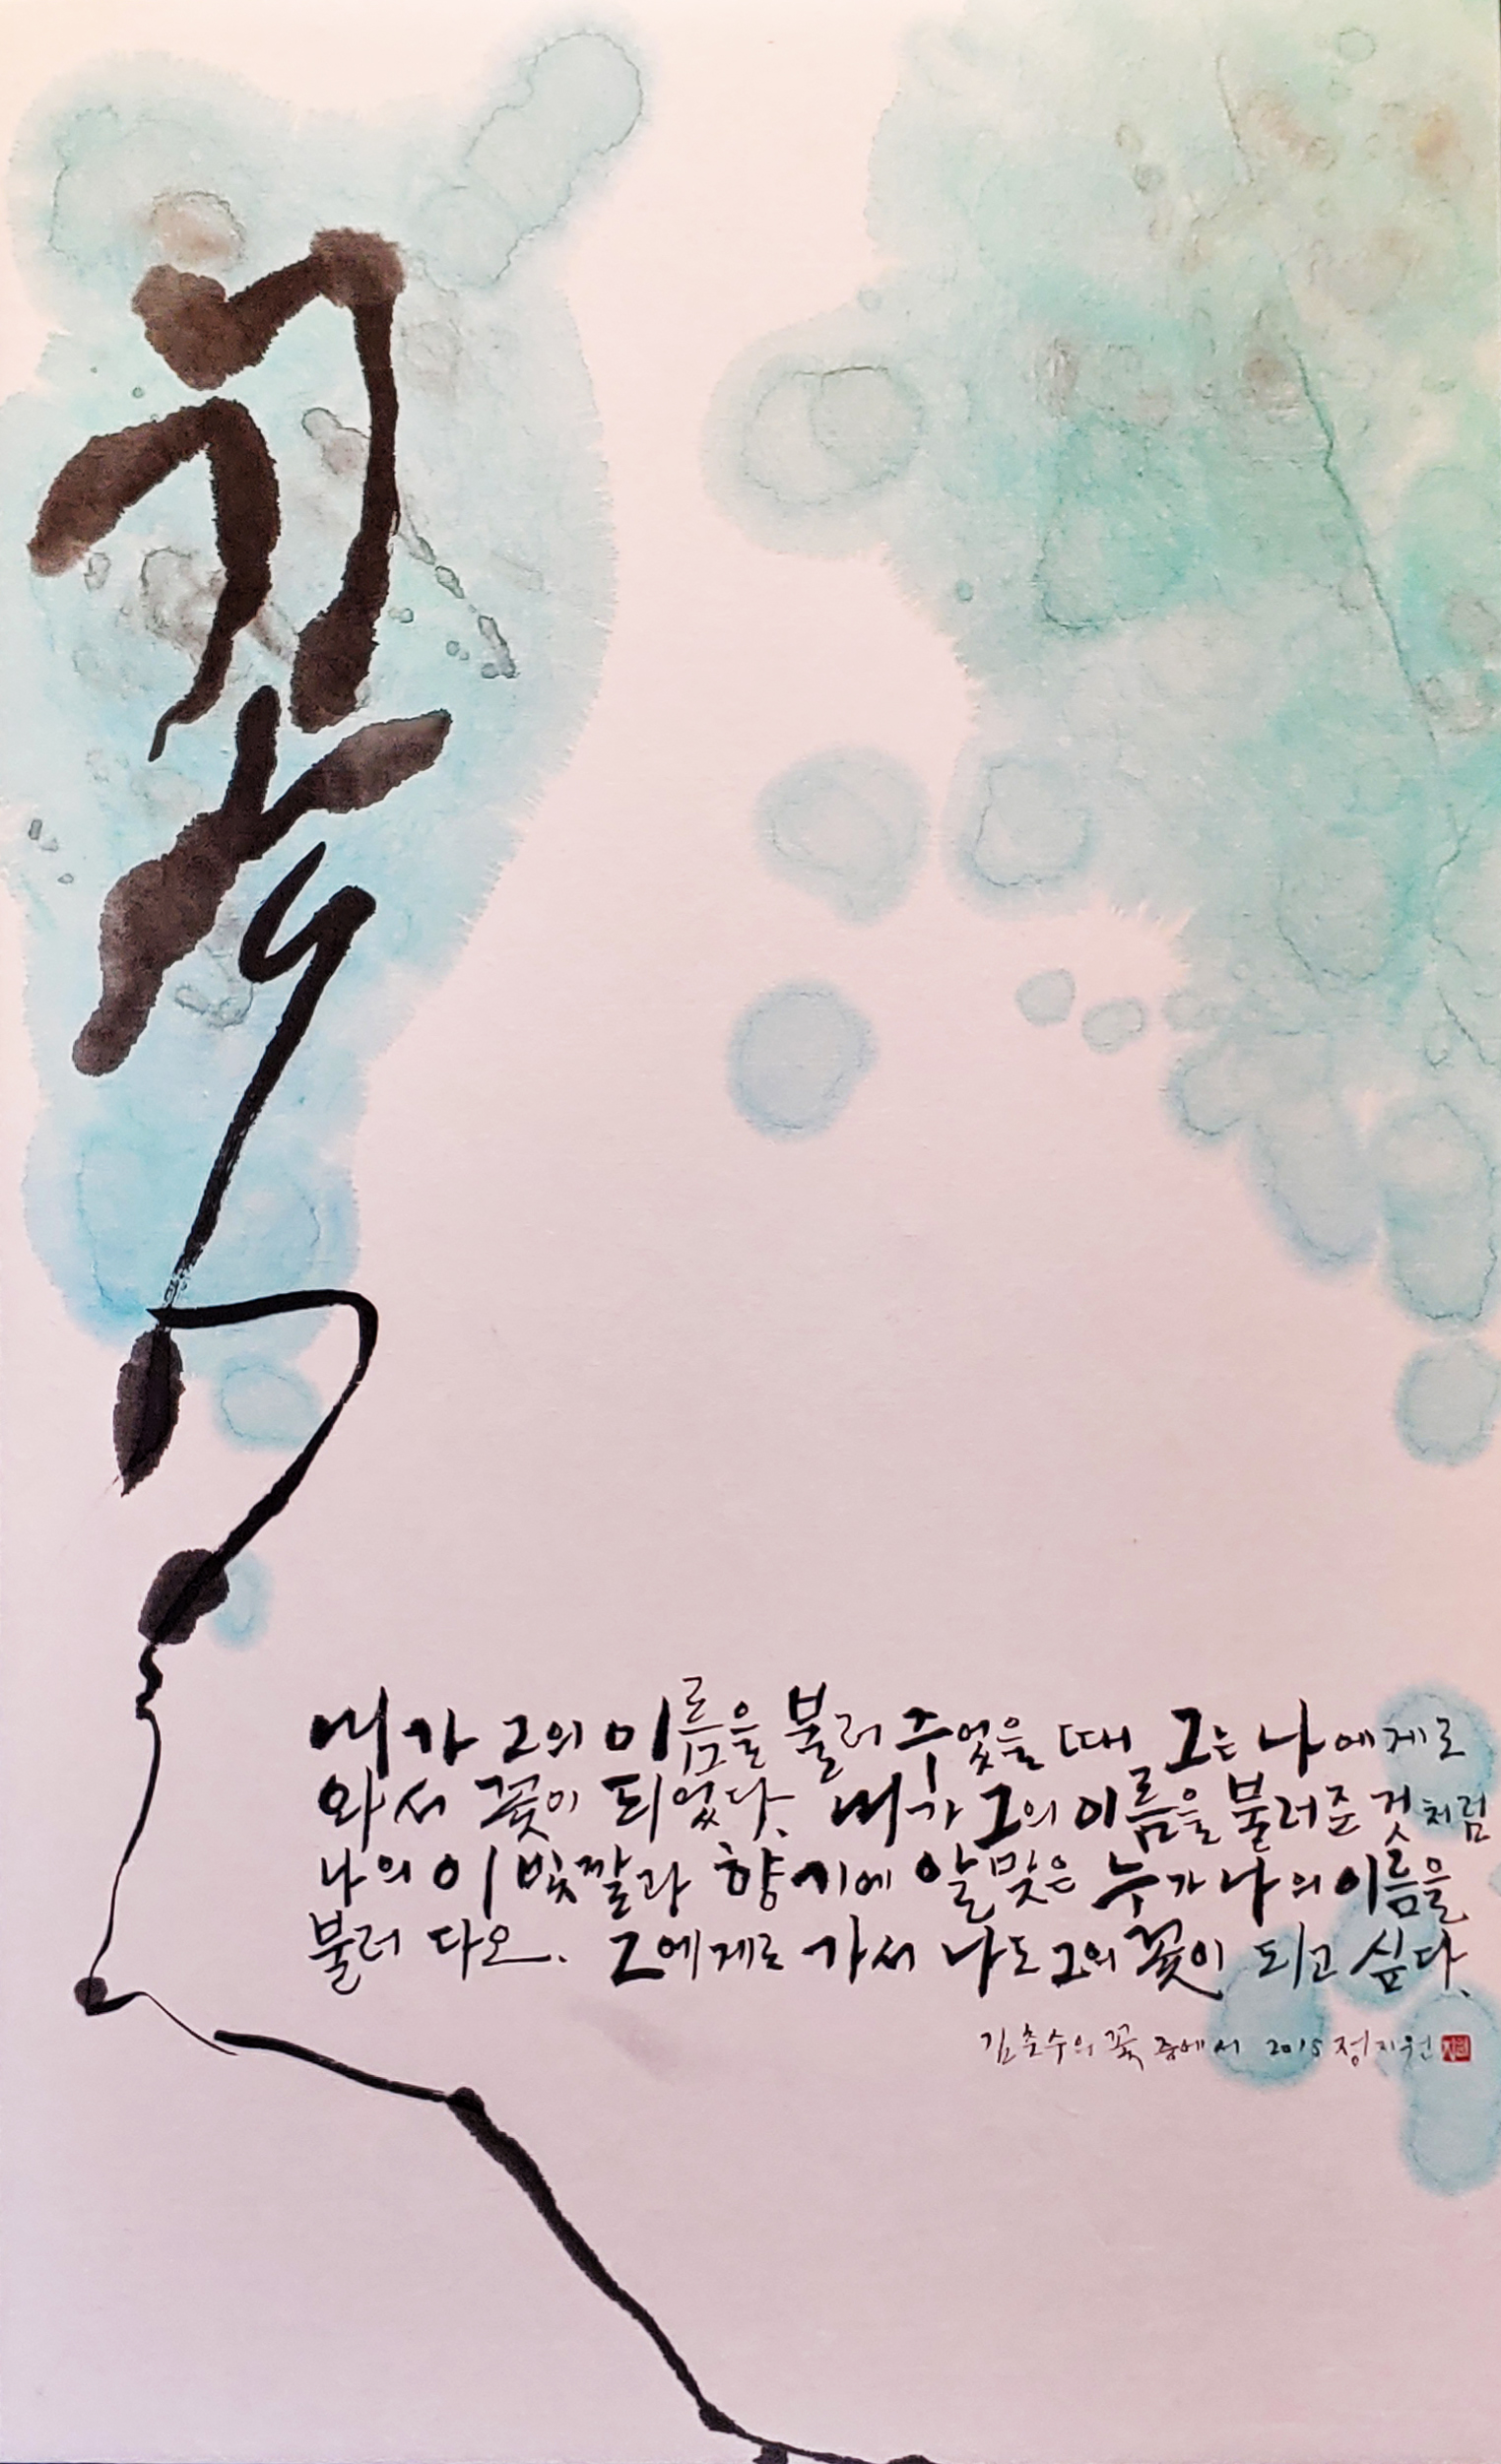 꽃
내가 그의 이름을 불러 주었을 때 그는 나에게로
와서 꽃이 되었다. 내가 그의 이름을 불러준 것처럼
나의 이 빛깔과 향기에 알맞은 누가 나의 이름을
불러 다오. 그에게로 가서 나도 그의 꽃이 되고 싶다.
김춘수의 꽃 중에서 2015 정지원